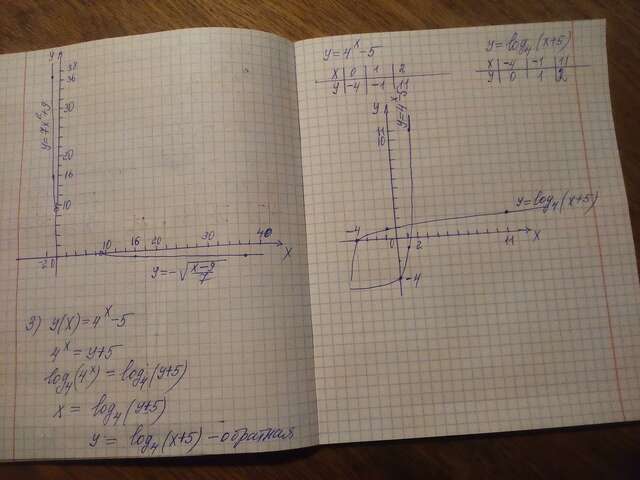 y
38
36
30
20
16
10
y=7x²+9
-2 0
10 16 20 30 40
x
y=-√(x-9)/7
3) y(x)=4^x-5
4^x=y+5
log₄(4^x)=log₄(y+5)
x=log₄(y+5)
y=log₄(x+5)-обратная
y=4^x-5
x 0 1 2
y -4 -1 11
y=log₄(x+5)
x -4 -1 11
y 0 1 2
y
y=4^x-5
11
10
y=log₄(x+5)
-4
0 2 11 x
-4